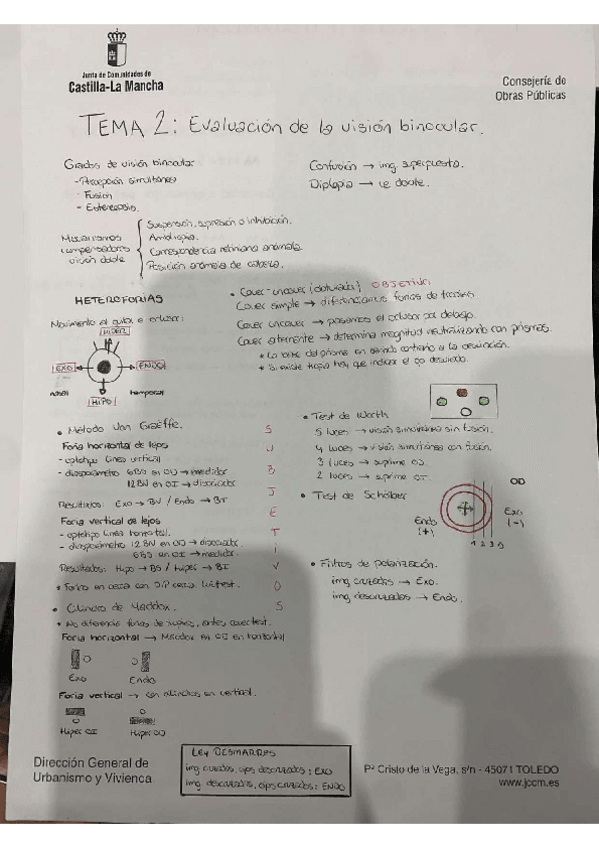 Junta de Comunidades de
Castilla-La Mancha
Consejería de
Obras Públicas
TEMA 2: Evaluación de la visión binocular.
Grados de visión binocular
- Percepción simultánea
- Fusión
- Estereopsis.
Confusión → img superpuesta.
Diplopia → ve doble.
Mecanismos
compensadores
visión doble
Suspensión, supresión o inhibición.
Ambliopía.
Correspondencia retiniana anómala.
Posición anómala de cabeza.
HETEROFORIAS
Movimiento al quitar oclusor:
HIPER
EXO
ENDO
nasal
temporal
HIPO
• Cover-uncover (disociado) OBJETIVO:
Cover simple → diferenciamos forias de tropias
Cover uncover → pasamos el oclusor por debajo.
Cover alternante → determina magnitud neutralizando con prismas.
* La base del prisma en sentido contrario a la desviación.
* Si existe tropia hay que indicar el ojo desviado.
• Método Von Graeffe.
Foria horizontal de lejos
- optotipo línea vertical
- diasporámetro 6BS en OD → medidor
12 BN en OI → disociador
Resultados: Exo → BN / Endo → BT
Foria vertical de lejos
- optotipo línea horizontal.
- diasporámetro 12 BN en OD → disociador
6BS en OI → medidor.
Resultados: Hipo → BS / Hiper → BI
* Forias en cerca con DIP cerca
• Cilindro de Maddox.
* No diferencia forias de tropias, antes cover test.
Foria horizontal → Maddox en OI en horizontal
Exo
Endo
Foria vertical → con cilindros en vertical.
Hiper OI
Hiper OD
SUBJETIVOS
• Test de Worth
5 luces → visión simultánea sin fusión.
4 luces → visión simultánea con fusión.
3 luces → suprime OD.
2 luces → suprime OI.
• Test de Schober
OD
Endo
(+)
Exo
(-)
1 2 3
• Filtros de polarización.
img cruzadas → Exo.
img descruzadas → Endo.
LEY DESMARRES
img cruzadas, ojos descruzados: EXO
img descruzadas, ojos cruzados: ENDO
Dirección General de
Urbanismo y Vivienca
Pº Cristo de la Vega, s/n - 45071 TOLEDO
www.jccm.es